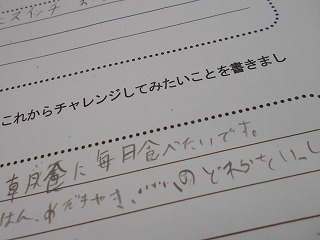 これからチャレンジしてみたいことを書きまし
朝食に毎日食べたいです。
はん、めだまやき、
のどれかをいっし